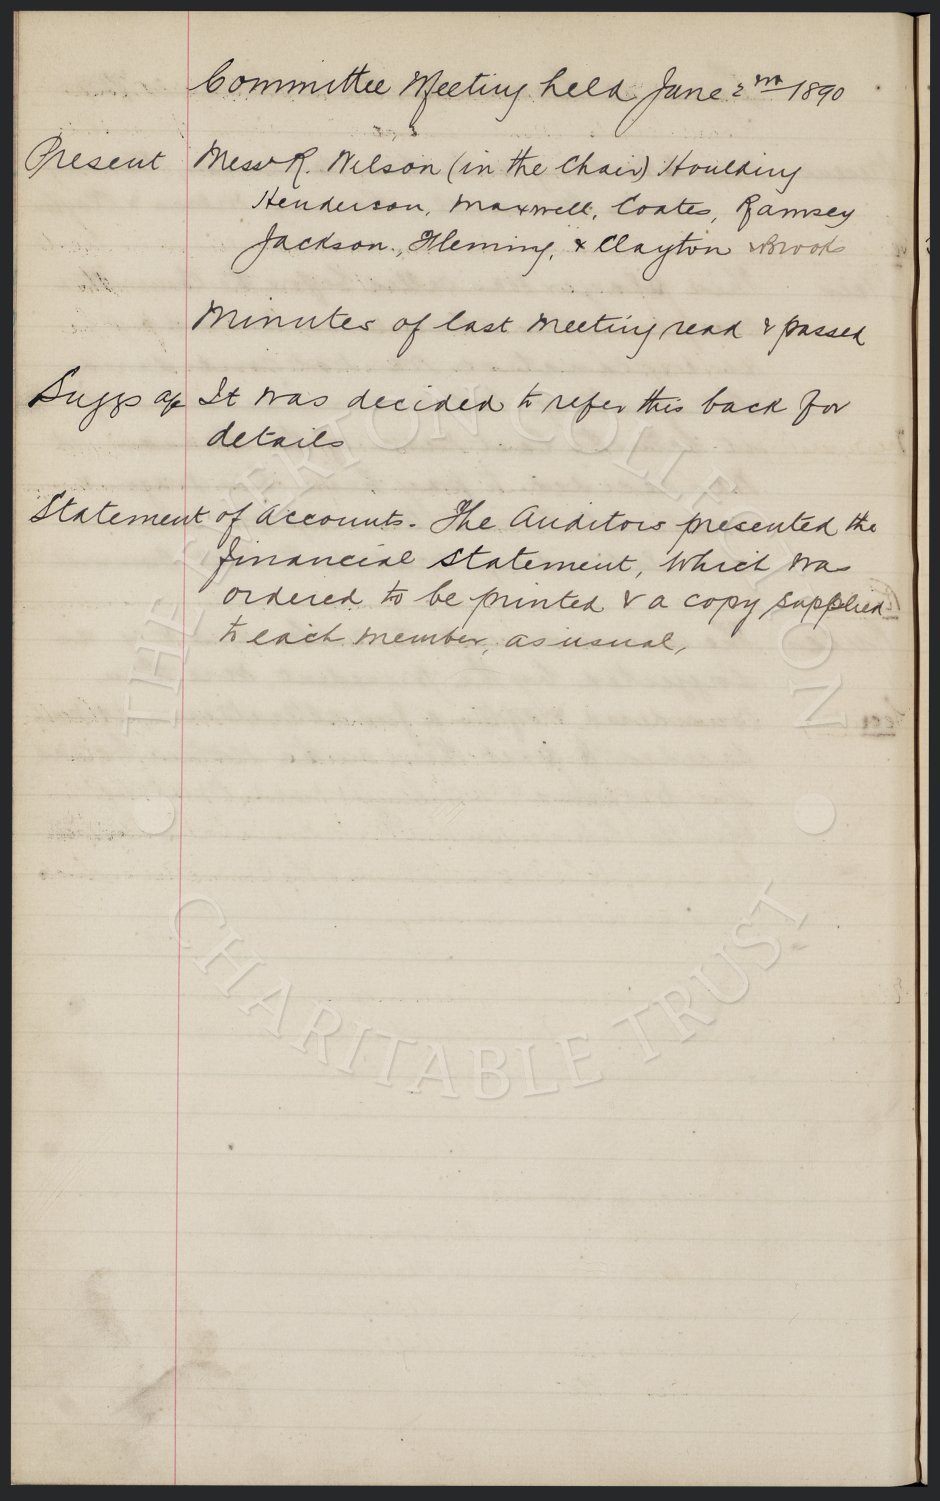 Committee Meeting held June 2nd 1890
Present Messrs R. Wilson (in the Chair) Houlding
Henderson, Maxwell, Coates, Ramsey
Jackson, Fleming, & Clayton & Brooks
Minutes of last Meeting read & passed
Suggs a/c It was decided to refer this back for
details
Statement of Accounts. The Auditors presented the
financial statement, which was
ordered to be printed & a copy supplied
to each member, as usual,
THE EVERTON COLLECTION
CHARITABLE TRUST